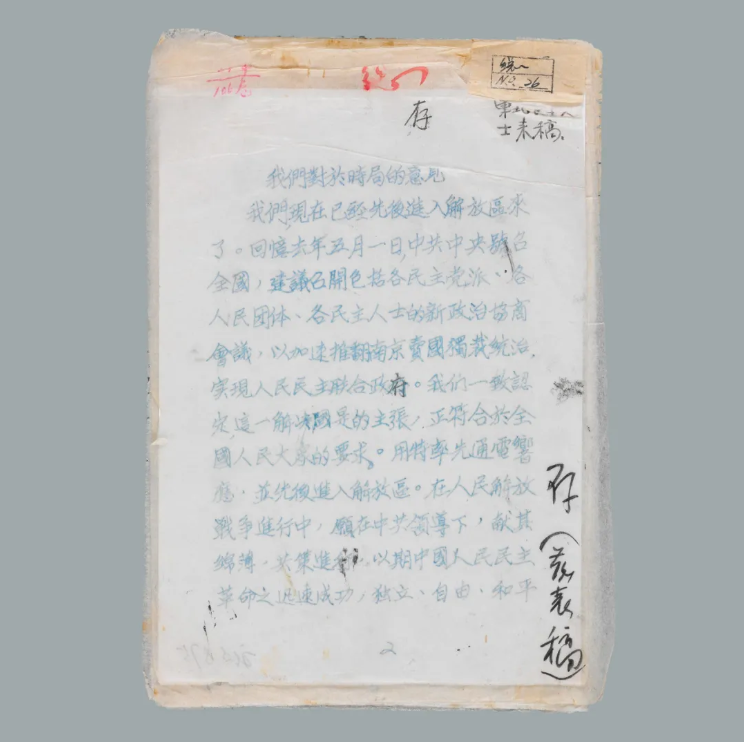 存
士来稿
我們對於時局的意見
我們現在已經先後進入解放區來
了。回憶去年五月一日,中共中央號召
全國,建議召開包括各民主党派、各
人民团体、各民主人士的新政治協商
會議,以加速推翻南京賣國獨裁統治,
實現人民民主联合政府。我们一致認
定這一解決國是的主張,正符合於全
國人民大衆的要求。用特率先通電響
應,並先後進入解放區。在人民解放
戰爭進行中,願在中共領導下,献其
綿薄,共策進行,以期中國人民民主
革命之迅速成功,独立、自由、和平
2
存(發表稿)